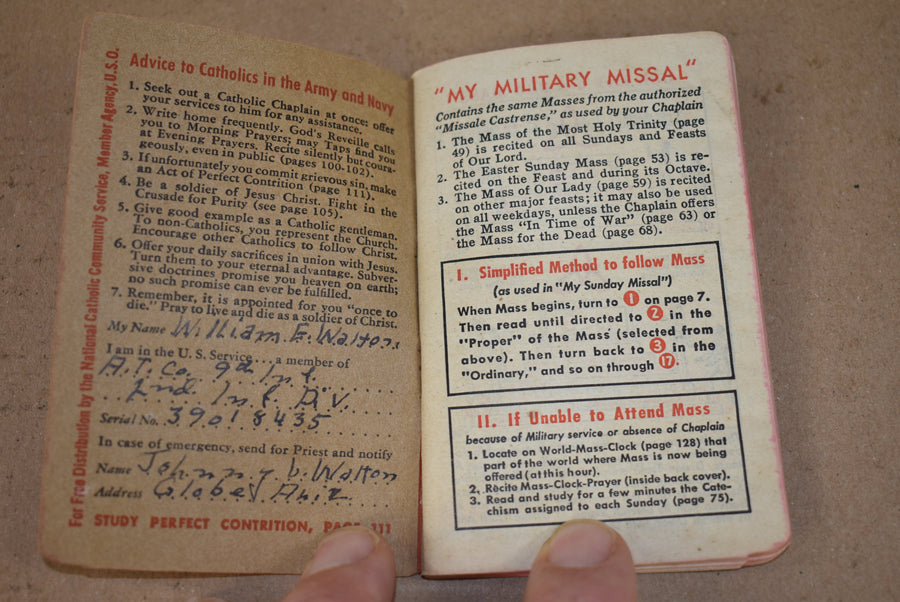 For Free Distribution by the National Catholic Community Service, Member Agency, U.S.O.
Advice to Catholics in the Army and Navy
1. Seek out a Catholic Chaplain at once: offer
your services to him for any assistance.
2. Write home frequently. God's Reveille calls
you to Morning Prayers; may Taps find you
at Evening Prayers. Recite silently but coura-
geously, even in public (pages 100-102).
3. If unfortunately you commit grievous sin, make
an Act of Perfect Contrition (page 111).
4. Be a soldier of Jesus Christ. Fight in the
Crusade for Purity (see page 105).
5. Give good example as a Catholic gentleman.
To non-Catholics, you represent the Church.
Encourage other Catholics to follow Christ.
6. Offer your daily sacrifices in union with Jesus.
Turn them to your eternal advantage. Subver-
sive doctrines promise you heaven on earth;
no such promise can ever be fulfilled.
7. Remember, it is appointed for you "once to
die." Pray to live and die as a soldier of Christ.
My Name William E. Walton
I am in the U. S. Service . . . a member of
A.T. Co. 9th Inf.
2nd. Inf. Div.
Serial No. 39018435
In case of emergency, send for Priest and notify
Name Johnny b. Walton
Address Globe, Ariz.
STUDY PERFECT CONTRITION, PAGE 111
"MY MILITARY MISSAL"
Contains the same Masses from the authorized
"Missale Castrense," as used by your Chaplain
1. The Mass of the Most Holy Trinity (page
49) is recited on all Sundays and Feasts
of Our Lord.
2. The Easter Sunday Mass (page 53) is re-
cited on the Feast and during its Octave.
3. The Mass of Our Lady (page 59) is recited
on other major feasts; it may also be used
on all weekdays, unless the Chaplain offers
the Mass "In Time of War" (page 63) or
the Mass for the Dead (page 68).
I. Simplified Method to follow Mass
(as used in "My Sunday Missal")
When Mass begins, turn to 1 on page 7.
Then read until directed to 2 in the
"Proper" of the Mass (selected from
above). Then turn back to 3 in the
"Ordinary," and so on through 17.
II. If Unable to Attend Mass
because of Military service or absence of Chaplain
1. Locate on World-Mass-Clock (page 128) that
part of the world where Mass is now being
offered (at this hour).
2. Recite Mass-Clock-Prayer (inside back cover).
3. Read and study for a few minutes the Cate-
chism assigned to each Sunday (page 75).